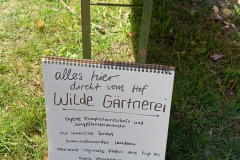 alles hier
direkt vom Hof
Wilde Gärtnerei
eigene Kompostwirtschaft und
Jungpflanzenanzucht
nur samenfeste Sorten
Landbau
regionale Vielfalt ohne
eigene